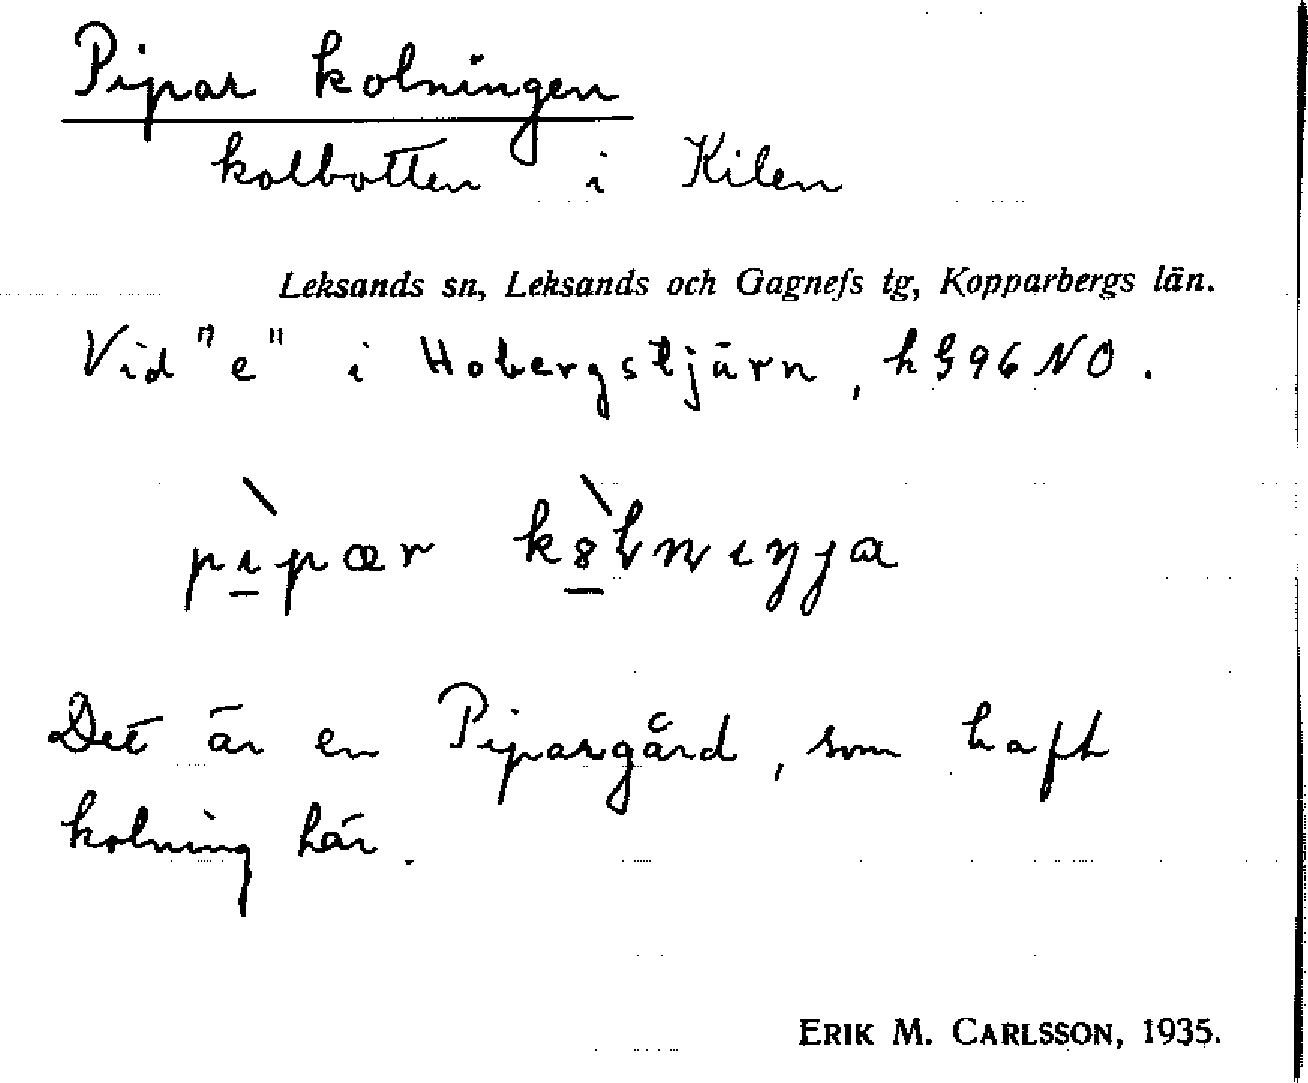 Pipar kolningen
kolbotten i Kilen
Leksands sn, Leksands och Gagnefs tg, Kopparbergs län.
Vid "e" i Hobergstjärn, h G 96 NO.
pìpær k8̀lnıŋja
Det är en Pipargård, som haft
kolning här.
ERIK M. CARLSSON, 1935.